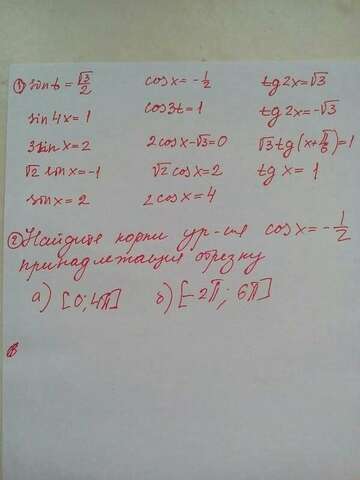 ① sin t = √3/2   cos x = -1/2   tg 2x = √3
sin 4x = 1   cos 3t = 1   tg 2x = -√3
3 sin x = 2   2 cos x - √3 = 0   √3 tg (x + π/6) = 1
√2 sin x = -1   √2 cos x = 2   tg x = 1
sin x = 2   2 cos x = 4
② Найдите корни ур-ия cos x = -1/2
принадлежащия отрезку
а) [0; 4π]   б) [-2π; 6π]